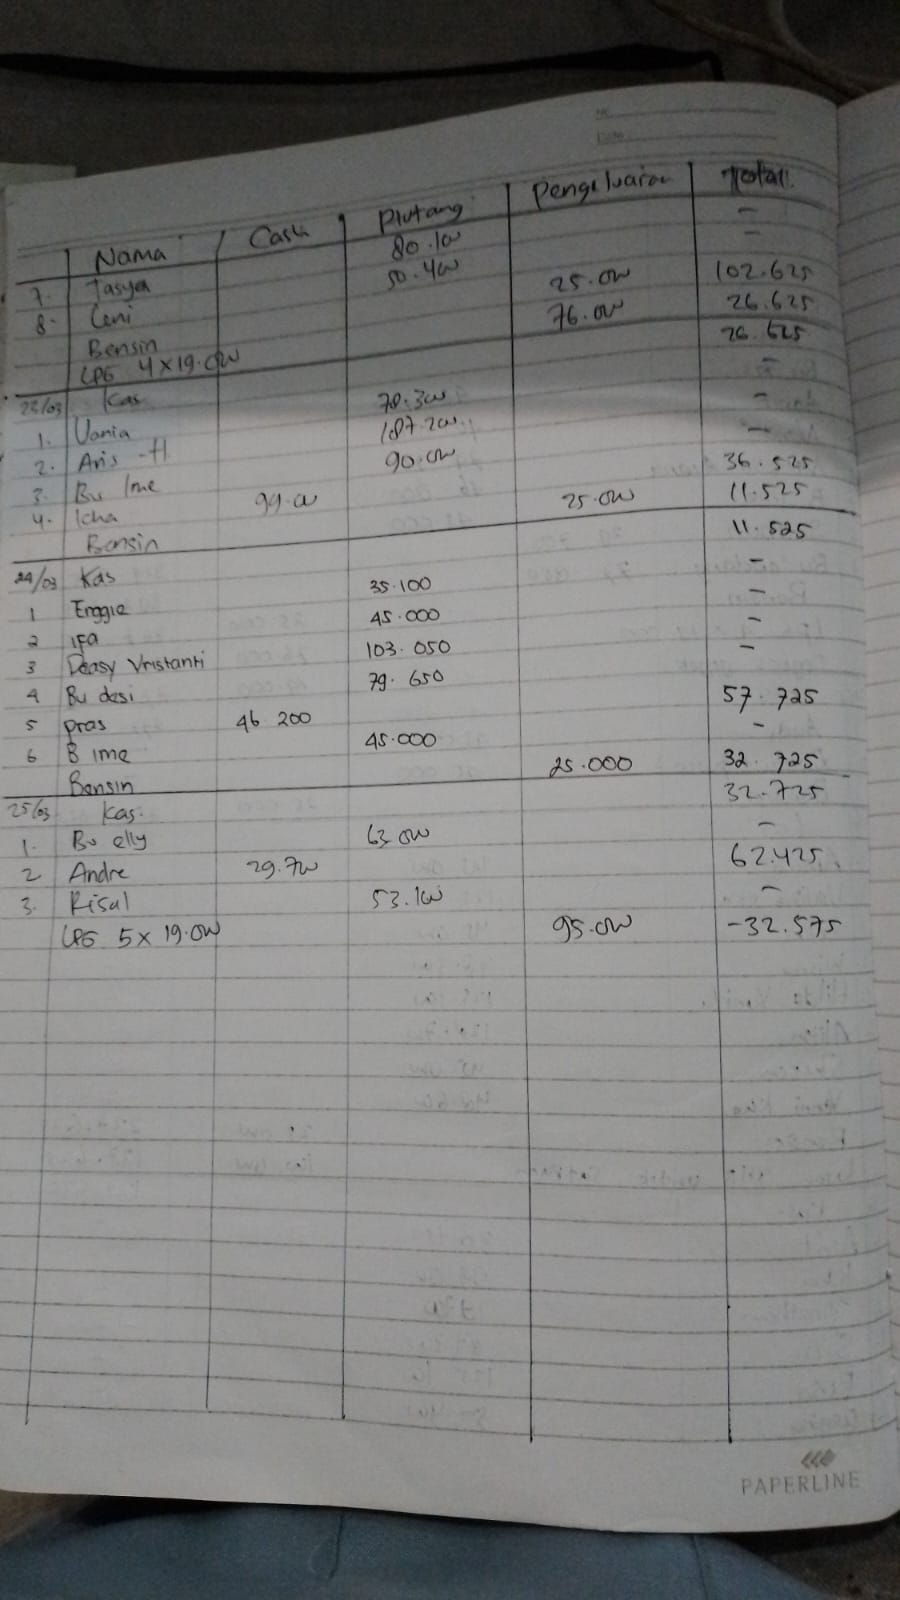 Nama Cash Piutang Pengeluaran Total
7. Tasya 80.100 -
8. Ceni 50.400 -
Bensin 25.000 102.625
LPG 4 x 19.000 76.000 26.625
23/03 Kas 26.625
1. Vania 70.300 -
2. Aris - H 187.200 -
3. Bu Ime 90.000 -
4. Icha 36.525
Bensin 25.000 11.525
24/03 Kas 11.525
1 Enggie 35.100 -
2 ifa 45.000 -
3 Deasy Vristanti 103.050 -
4 Bu desi 79.650 -
5 pras 46 200 57.725
6 B ime 45.000 -
Bensin 25.000 32.725
25/03 Kas. 32.725
1. Bu elly 63.000 -
2 Andre 29.700 62.425
3. Risal 53.100 -
LPG 5 x 19.000 95.000 -32.575
PAPERLINE